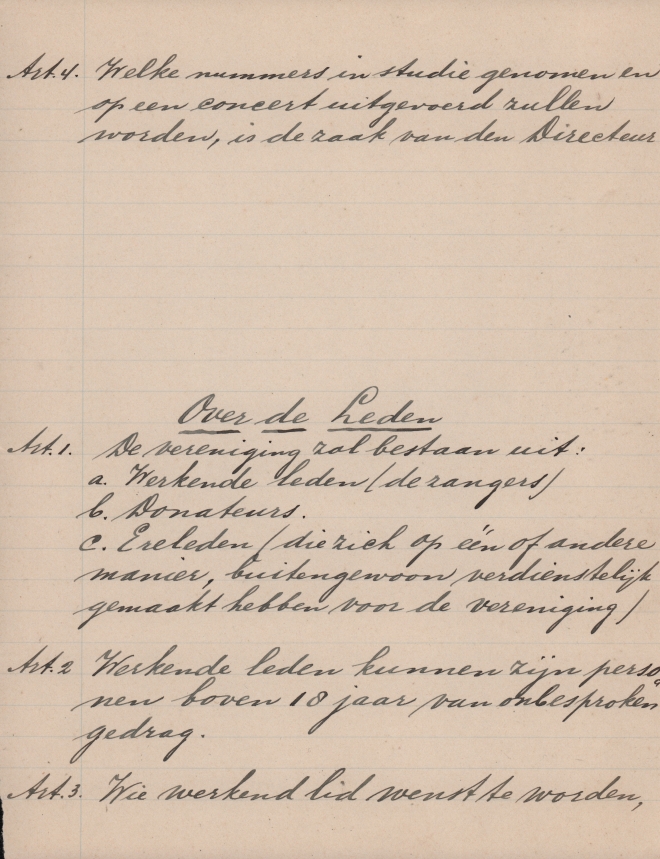 Art. 4. Welke nummers in studie genomen en
op een concert uitgevoerd zullen
worden, is de zaak van den Directeur
Over de Leden
Art. 1. De vereniging zal bestaan uit:
a. Werkende leden (de zangers)
b. Donateurs.
c. Ereleden (die zich op één of andere
manier, buitengewoon verdienstelijk
gemaakt hebben voor de vereniging)
Art. 2 Werkende leden kunnen zijn perso
nen boven 18 jaar van onbesproken
gedrag.
Art. 3. Wie werkend lid wenst te worden,